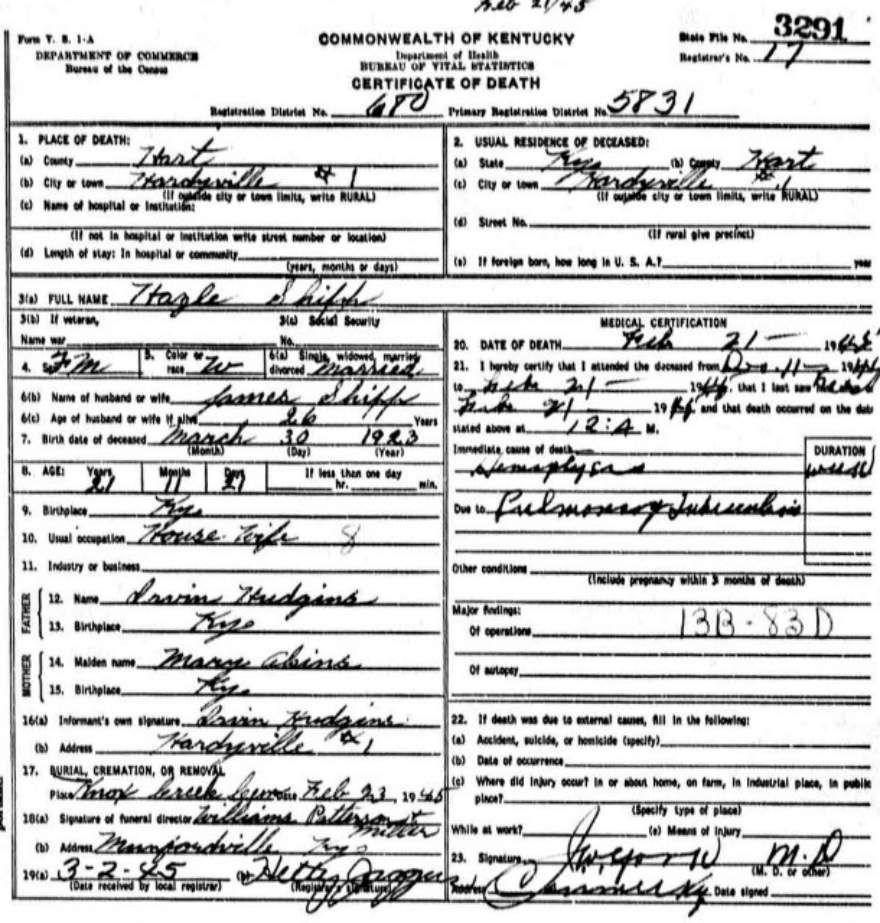 Feb 21/45
Form V. S. 1-A
DEPARTMENT OF COMMERCE
Bureau of the Census
COMMONWEALTH OF KENTUCKY
Department of Health
BUREAU OF VITAL STATISTICS
CERTIFICATE OF DEATH
State File No. 3291
Registrar's No. 17
Registration District No. 680 Primary Registration District No. 5831
1. PLACE OF DEATH:
(a) County Hart
(b) City or town Hardyville #1
(If outside city or town limits, write RURAL)
(c) Name of hospital or institution:
(If not in hospital or institution write street number or location)
(d) Length of stay: In hospital or community
(years, months or days)
2. USUAL RESIDENCE OF DECEASED:
(a) State Ky (b) County Hart
(c) City or town Hardyville #1
(If outside city or town limits, write RURAL)
(d) Street No.
(If rural give precinct)
(e) If foreign born, how long in U. S. A.? year
3(a) FULL NAME Hazle Shipp
3(b) If veteran,
Name war
3(c) Social Security
No.
4. Sex F M 5. Color or race W 6(a) Single, widowed, married, divorced Married
6(b) Name of husband or wife James Shipp
6(c) Age of husband or wife if alive 26 Years
7. Birth date of deceased March 30 1923
(Month) (Day) (Year)
8. AGE: Years 21 Months 11 Days 21 If less than one day
hr. min.
9. Birthplace Ky
10. Usual occupation House Wife 8
11. Industry or business
FATHER
12. Name Irvin Hudgins
13. Birthplace Ky
MOTHER
14. Maiden name Mary
15. Birthplace Ky
16(a) Informant's own signature Irvin Hudgins
(b) Address Hardyville #1
17. BURIAL, CREMATION, OR REMOVAL
Place Knox Creek Cem Date Feb 23, 1945
18(a) Signature of funeral director Williams Patterson & Miller
(b) Address Munfordville Ky
19(a) 3-2-45 (b) Hettie Jaggers
(Date received by local registrar) (Registrar's signature)
MEDICAL CERTIFICATION
20. DATE OF DEATH Feb 21 - 19
21. I hereby certify that I attended the deceased from Dec. 11 - 1944
to Feb 21 - 19 , that I last saw
Feb 21 - 19 and that death occurred on the date
stated above at 12:A M.
Immediate cause of death
DURATION
Due to Pulmonary Tuberculosis
Other conditions
(Include pregnancy within 3 months of death)
Major findings:
Of operations 13B-83D
Of autopsy
22. If death was due to external causes, fill in the following:
(a) Accident, suicide, or homicide (specify)
(b) Date of occurrence
(c) Where did injury occur? In or about home, on farm, in industrial place, in public
place?
(Specify type of place)
While at work? (e) Means of injury
23. Signature M.D
(M. D. or other)
Address Ky Date signed